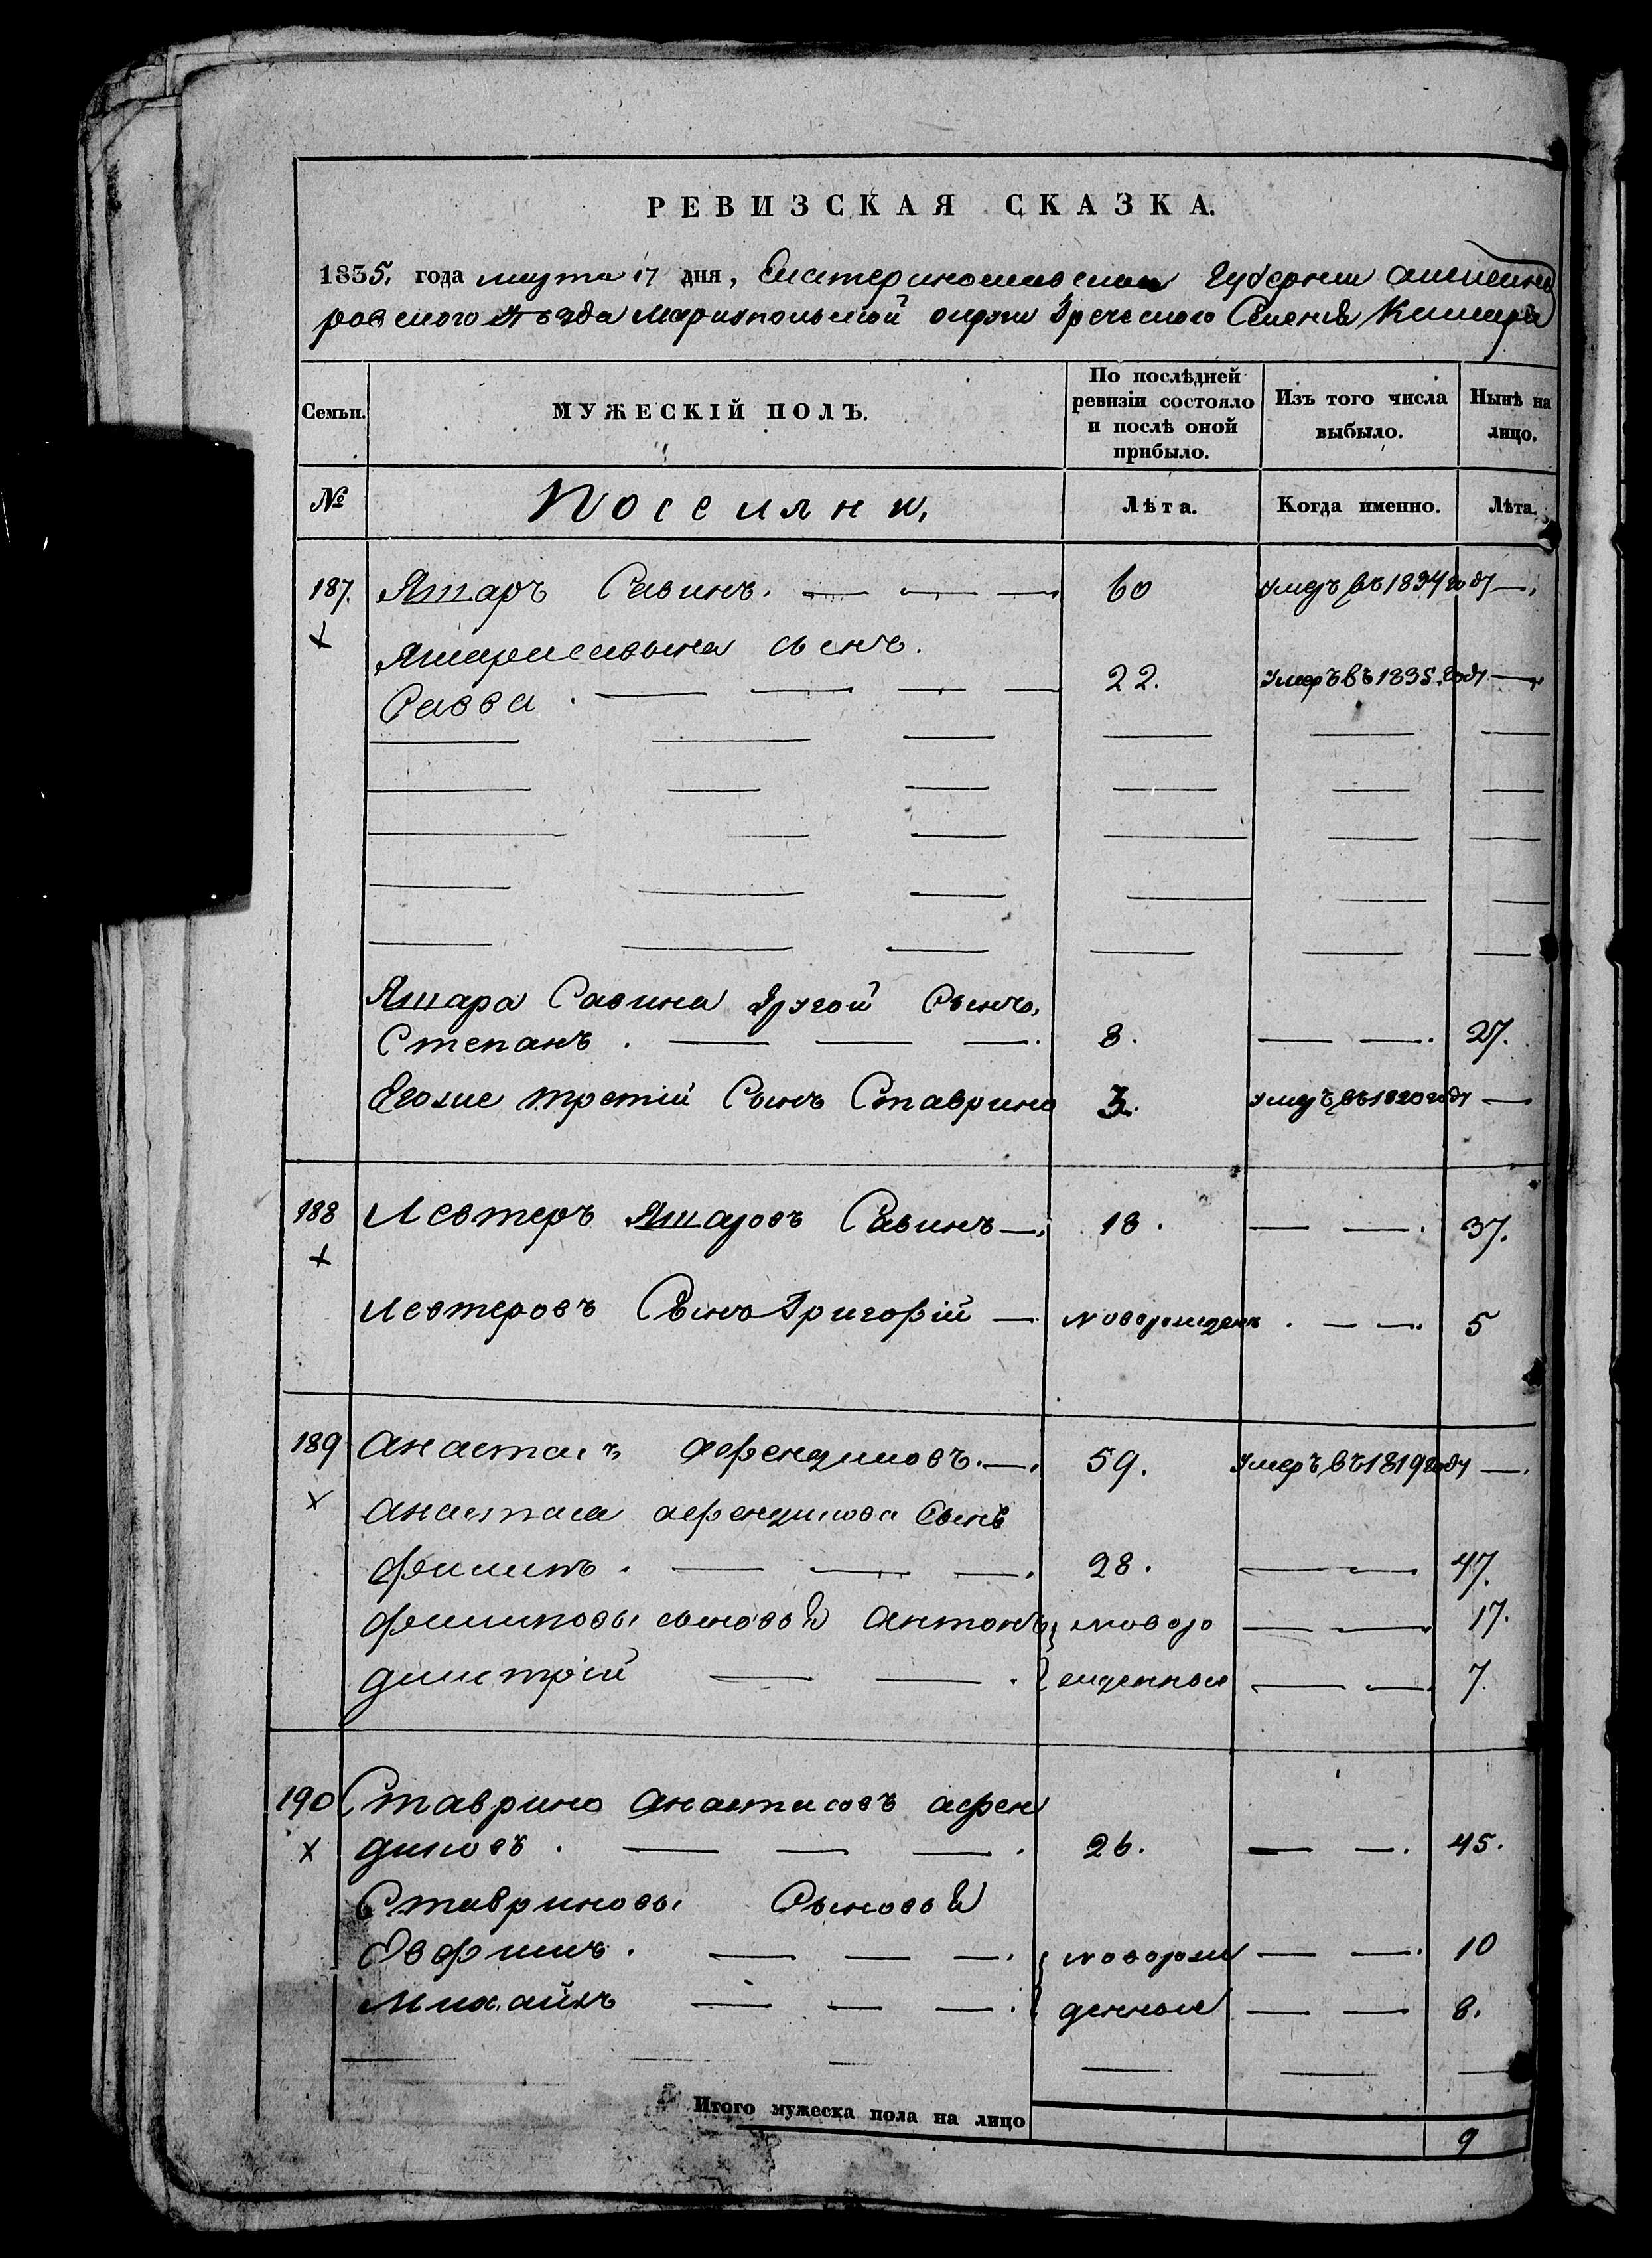 РЕВИЗСКАЯ СКАЗКА.
1835. года марта 17 дня, Екатеринославской Губернии Александ
ровского уѣзда Мариупольской округи Греческого Селенія
Семьи. МУЖЕСКІЙ ПОЛЪ. По послѣдней ревизіи состояло и послѣ оной прибыло. Изъ того числа выбыло. Нынѣ на лицо.
№ Поселяни, Лѣта. Когда именно. Лѣта.
187. Яшаръ Савинъ. 60 умеръ въ 1834 году
Яшара савина сынъ.
Савва . 22. умеръ въ 1835. году
Яшара Савина другой Сынъ.
Степанъ . 8. 27.
Егоже третій Сынъ Ставрино 3. умеръ въ 1820 году
188 Левтеръ Яшаровъ Савинъ 18. 37.
Левтеровъ Сынъ Григорій новорожденъ 5
189 Анастасъ афендиковъ. 59. умеръ въ 1819 году
Анастаса афендикова Сынъ
филипъ . 28. 47.
филиповы сыновья Антонъ новоро 17.
дмитрій жденные 7.
190 Ставрино Анастасовъ афен
диковъ . 26. 45.
Ставриновы Сыновья
Евфимъ . новорож 10
Михайлъ денные 8.
Итого мужеска пола на лицо 9